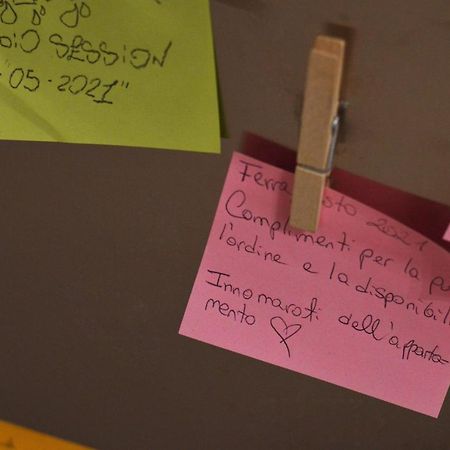 DIO SESSION
05-2021"
Ferra sto 2021
Complimenti per la pu
l'ordine e la disponibil
Innomarati dell'apparta-
mento